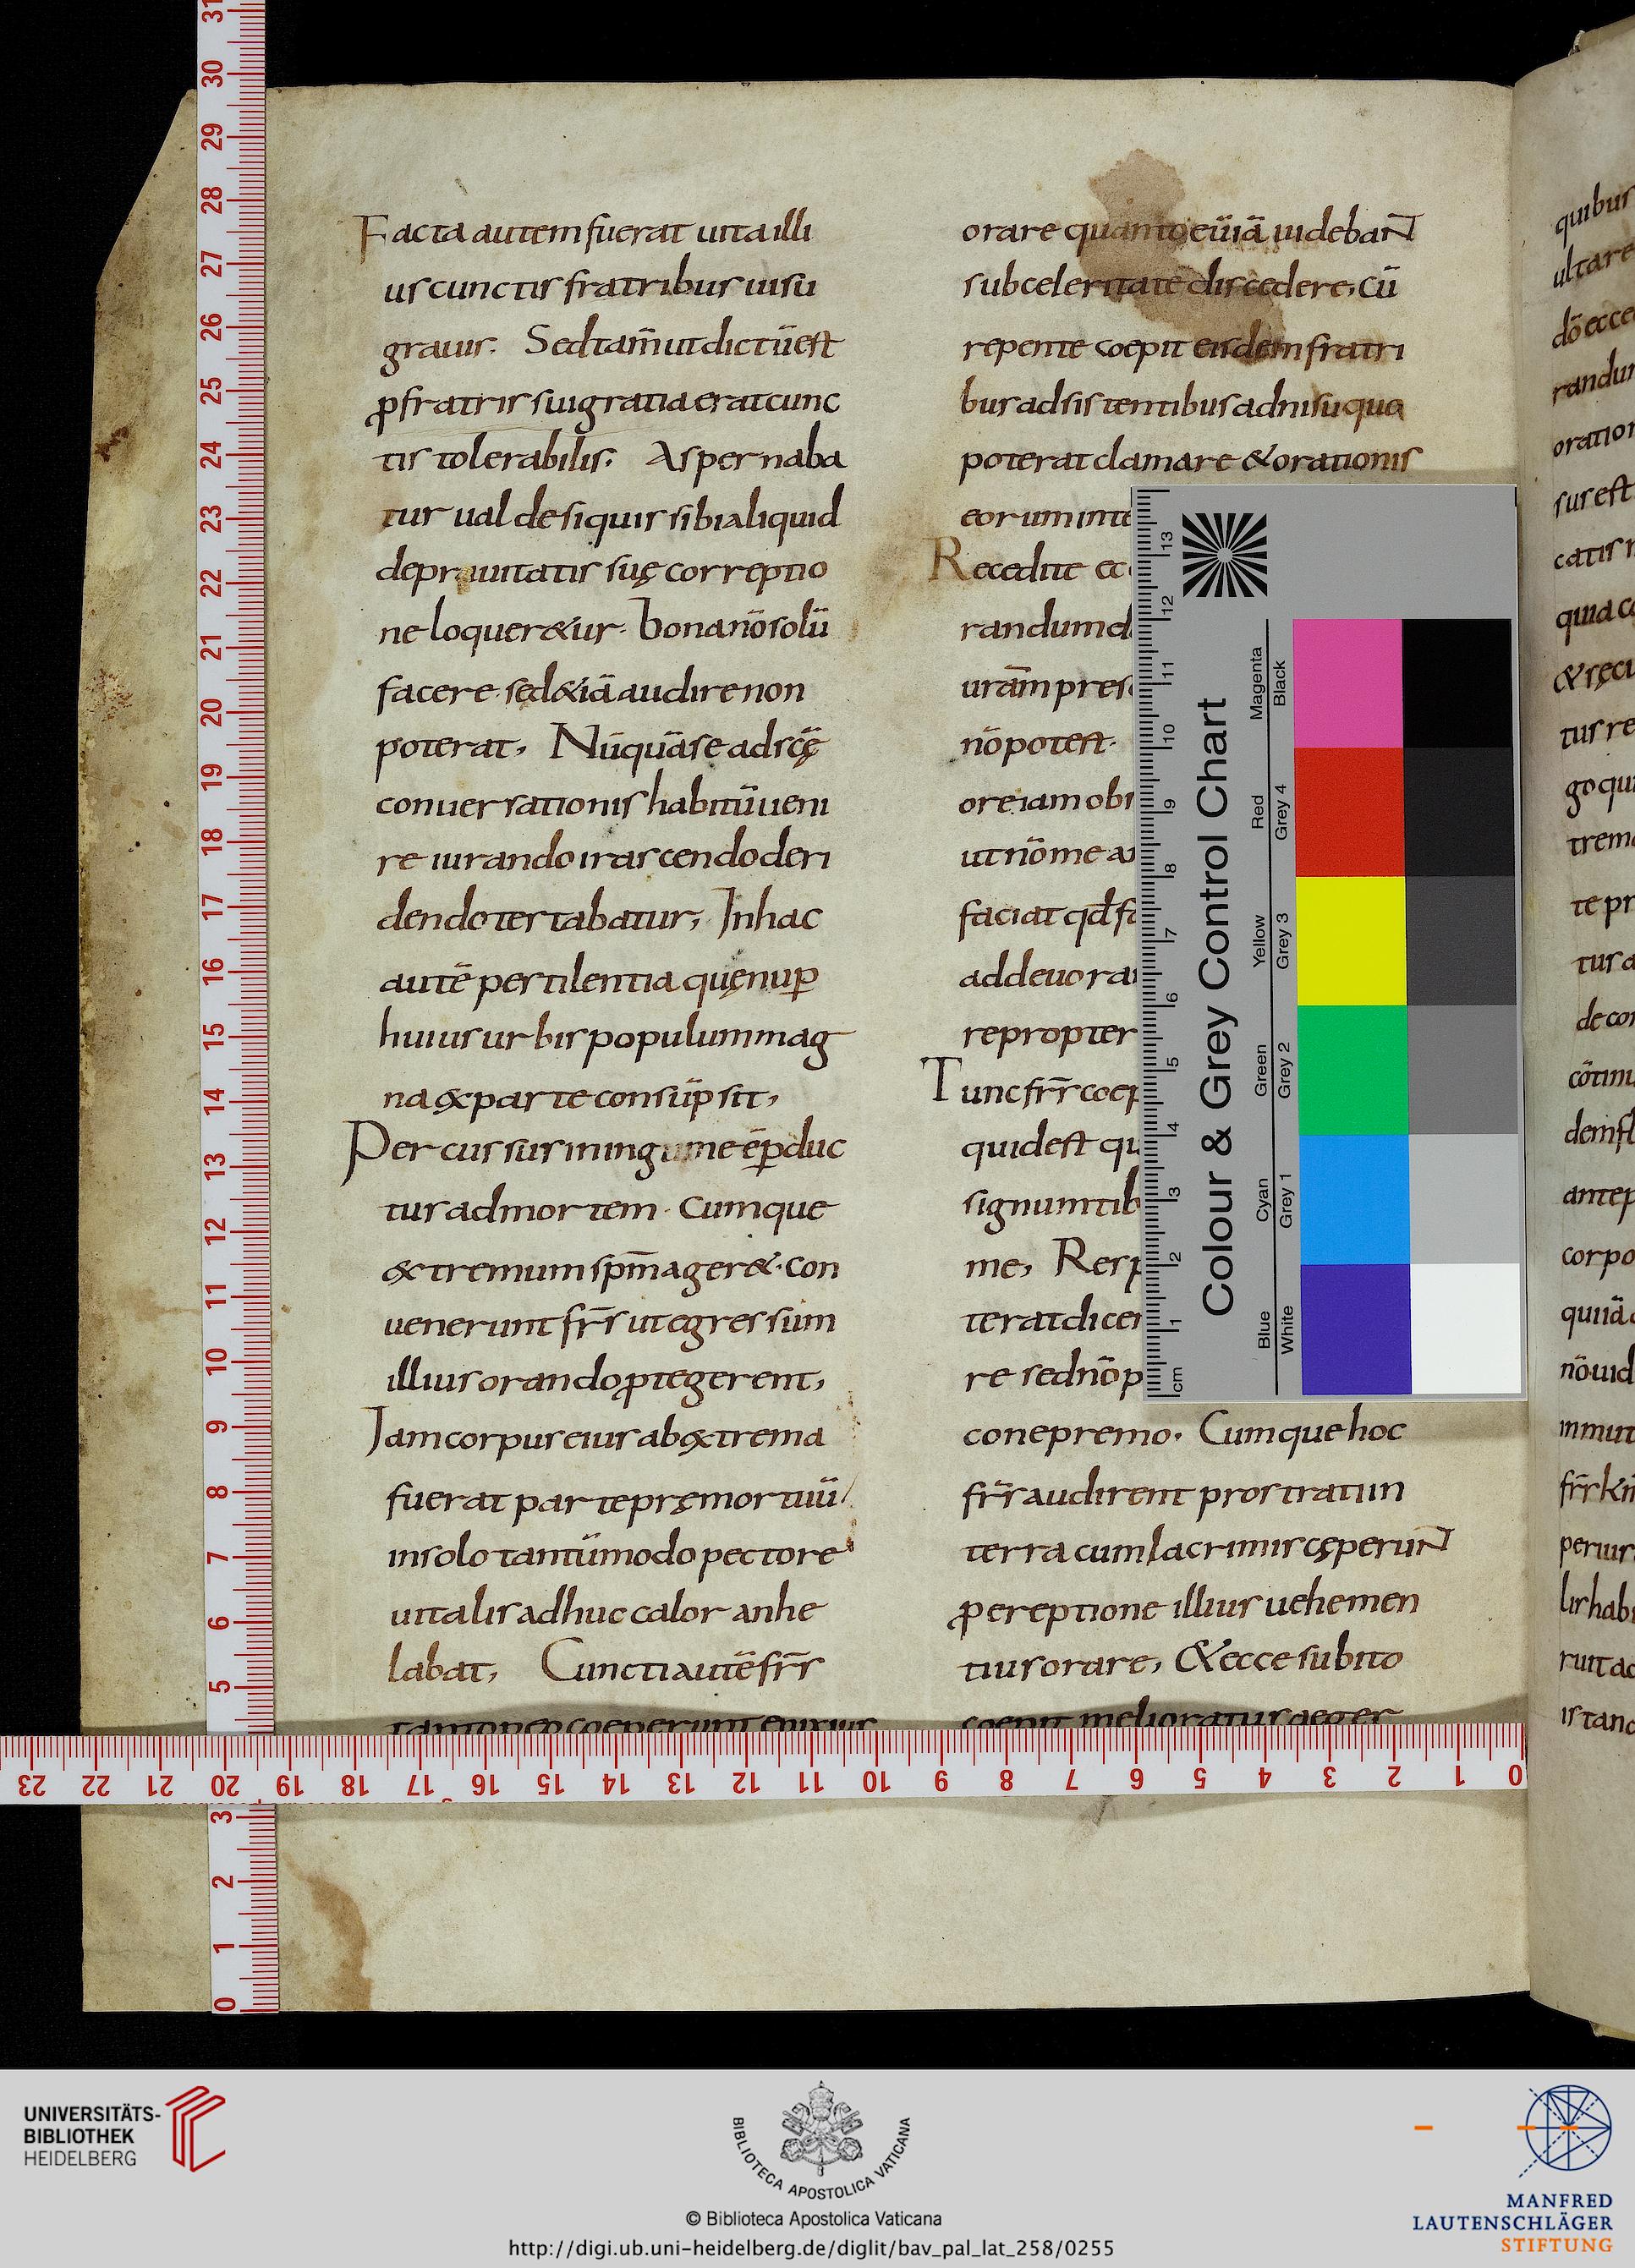 Facta autem fuerat uita illi
us cunctis fratribus uisu
grauis. Sed tam̄ ut dictū est
ꝓ fratris sui gratia erat cunc
tis tolerabilis. Aspernaba
tur ualde si quis sibi aliquid
de prauitatis suę correptio
ne loquer&ur. bona nō solū
facere sed &iā audire non
poterat, Nūquā se ad sc̄ę
conuersationis habitū ueni
re iurando irascendo deri
dendo testabatur, In hac
autē pestilentia quę nup̄
huius urbis populum mag
na ex parte consūpsit,
Percussus in inguine ē ꝑduc
tus ad mortem. Cumque
extremum sp̄m ager&. con
uenerunt fr̄s ut egressum
illius orando ꝓtegerent,
Iam corpus eius ab extrema
fuerat parte pręmortuū
in solo tantūmodo pectore
uitalis adhuc calor anhe
labat, Cuncti autē fr̄s
tanto p eo coeperunt enixius
orare quanto eū iā uideban̄t
sub celeritate discedere, cū
repente coepit eisdem fratri
bus adsistentibus adnisu quo
poterat clamare & orationis
eorum inte
Recedite ec
randum d
urām pres
nō potest.
ore iam obs
ut nō me a
faciat qd̄ fa
ad deuora
re propter
Tunc fr̄s coep
quid est qu
signum tib
me, Resp
terat dicen
re sed nō p
cone premo. Cumque hoc
fr̄s audirent prostrati in
terra cum lacrimis cęperun̄t
ꝓ ereptione illius uehemen
tius orare, & ecce subito
coepit melioratus aeger
quibus
ultare
dō ecce
randum
oration
sus est
catis n
quia co
& secu
tus re
go qui
trem
te pr
tus a
de con
cōtinu
dem fl
ante p
corpo
qui iā
nō uid
inmut
fr̄s kri
perius
lis hab
ruit ac
is tanc
Colour & Grey Control Chart
Magenta Black
Red Grey 4
Yellow Grey 3
Green Grey 2
Cyan Grey 1
Blue White
cm 1 2 3 4 5 6 7 8 9 10 11 12 13
31 30 29 28 27 26 25 24 23 22 21 20 19 18 17 16 15 14 13 12 11 10 9 8 7 6 5 3 2 1 0
23 22 21 20 19 18 17 16 15 14 13 12 11 10 9 8 7 6 5 4 3 2 1 0
UNIVERSITÄTS-
BIBLIOTHEK
HEIDELBERG
BIBLIOTECA APOSTOLICA VATICANA
© Biblioteca Apostolica Vaticana
http://digi.ub.uni-heidelberg.de/diglit/bav_pal_lat_258/0255
MANFRED
LAUTENSCHLÄGER
STIFTUNG